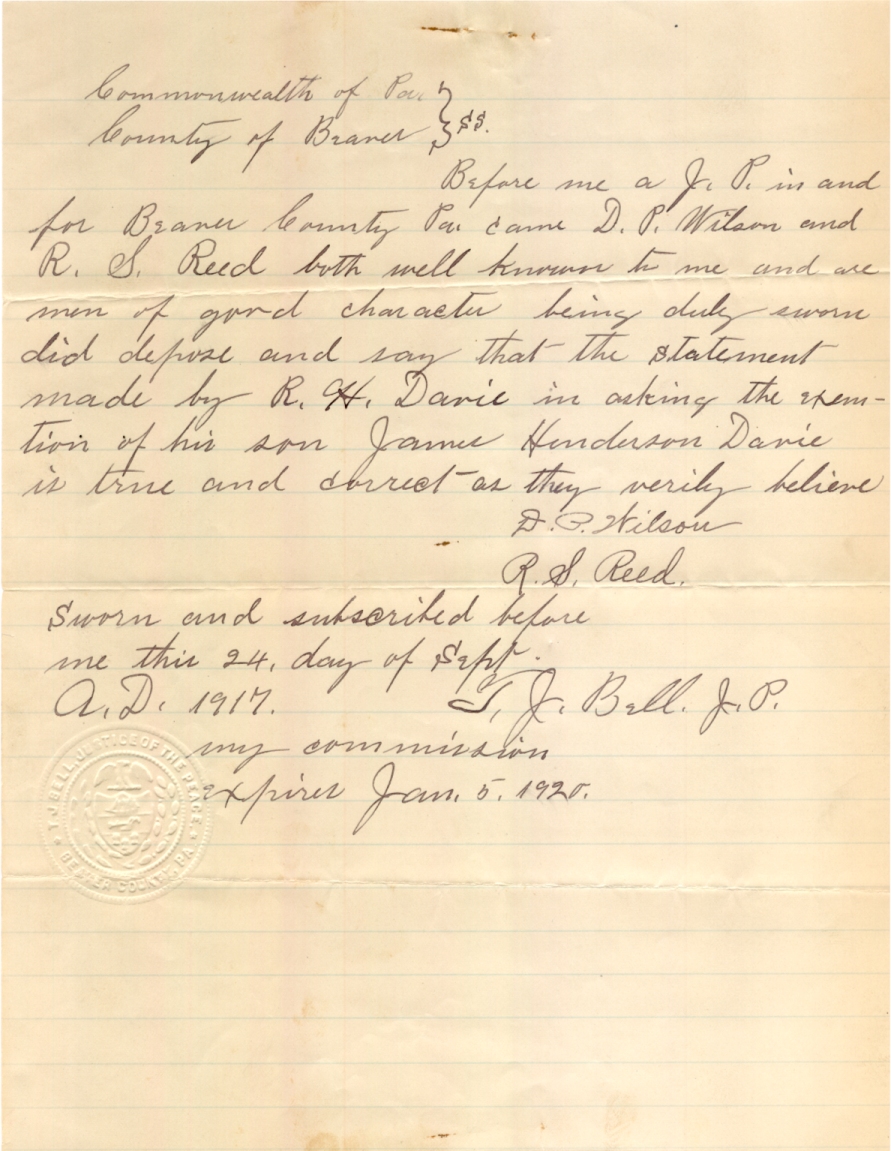 Commonwealth of Pa. } SS.
County of Beaver
Before me a J. P. in and
for Beaver County Pa. came D. P. Wilson and
R. S. Reed both well known to me and are
men of good character being duly sworn
did depose and say that the statement
made by R. H. Davie in asking the exem-
tion of his son James Henderson Davie
is true and correct as they verily believe
D. P. Wilson
R. S. Reed.
Sworn and subscribed before
me this 24. day of Sept.
A. D. 1917. T. J. Bell. J. P.
my commission
expires Jan. 5. 1920.
T. J. BELL, JUSTICE OF THE PEACE
BEAVER COUNTY, PA.